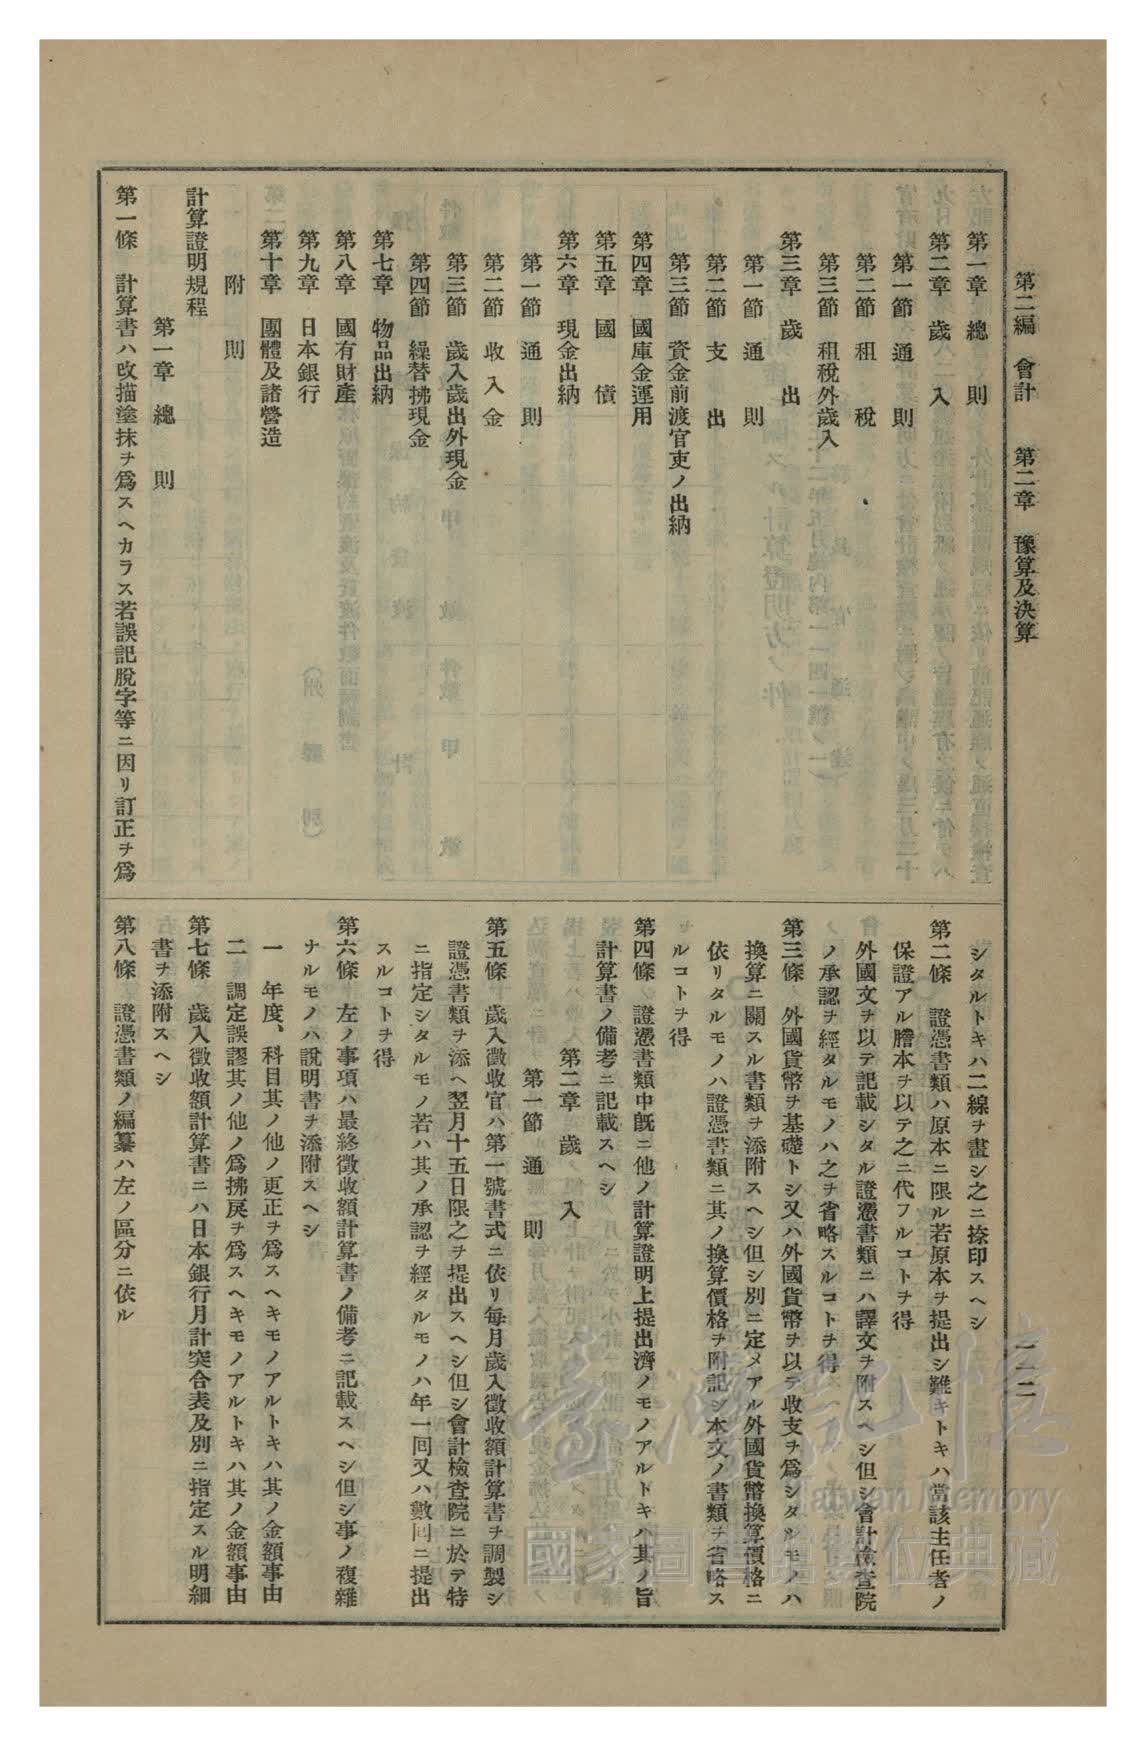 第二編 會計 第二章 豫算及決算
一一二
第一章 總則
第二章 歲入
第一節 通則
第二節 租稅
第三節 租稅外歲入
第三章 歲出
第一節 通則
第二節 支出
第三節 資金前渡官吏ノ出納
第四章 國庫金運用
第五章 國債
第六章 現金出納
第一節 通則
第二節 收入金
第三節 歲入歲出外現金
第四節 繰替拂現金
第七章 物品出納
第八章 國有財產
第九章 日本銀行
第十章 團體及諸營造
附則
計算證明規程
第一章 總則
第一條 計算書ハ改描塗抹ヲ爲スヘカラス若誤記脫字等ニ因リ訂正ヲ爲
シタルトキハ二線ヲ畫シ之ニ捺印スヘシ
第二條 證憑書類ハ原本ニ限ル若原本ヲ提出シ難キトキハ當該主任者ノ
保證アル謄本ヲ以テ之ニ代フルコトヲ得
外國文ヲ以テ記載シタル證憑書類ニハ譯文ヲ附スヘシ但シ會計檢査院
ノ承認ヲ經タルモノハ之ヲ省略スルコトヲ得
第三條 外國貨幣ヲ基礎トシ又ハ外國貨幣ヲ以テ收支ヲ爲シタルモノハ
換算ニ關スル書類ヲ添附スヘシ但シ別ニ定メアル外國貨幣換算價格ニ
依リタルモノハ證憑書類ニ其ノ換算價格ヲ附記シ本文ノ書類ヲ省略ス
ルコトヲ得
第四條 證憑書類中旣ニ他ノ計算證明上提出濟ノモノアルトキハ其ノ旨
計算書ノ備考ニ記載スヘシ
第二章 歲入
第一節 通則
第五條 歲入徵收官ハ第一號書式ニ依リ每月歲入徵收額計算書ヲ調製シ
證憑書類ヲ添ヘ翌月十五日限之ヲ提出スヘシ但シ會計檢査院ニ於テ特
ニ指定シタルモノ若ハ其ノ承認ヲ經タルモノハ年一回又ハ數回ニ提出
スルコトヲ得
第六條 左ノ事項ハ最終徵收額計算書ノ備考ニ記載スヘシ但シ事ノ複雜
ナルモノハ說明書ヲ添附スヘシ
一 年度、科目其ノ他ノ更正ヲ爲スヘキモノアルトキハ其ノ金額事由
二 調定誤謬其ノ他ノ爲拂戾ヲ爲スヘキモノアルトキハ其ノ金額事由
第七條 歲入徵收額計算書ニハ日本銀行月計突合表及別ニ指定スル明細
書ヲ添附スヘシ
第八條 證憑書類ノ編纂ハ左ノ區分ニ依ル
臺灣記憶
Taiwan Memory
國家圖書館數位典藏